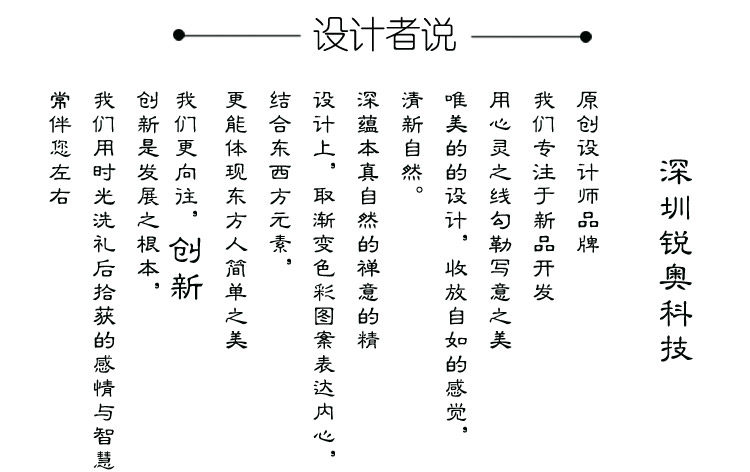 设计者说
深圳锐奥科技
原创设计师品牌
我们专注于新品开发
用心灵之线勾勒写意之美
唯美的的设计，收放自如的感觉，
清新自然。
深蕴本真自然的禅意的精
设计上，取渐变色彩图案表达内心，
结合东西方元素，
更能体现东方人简单之美
我们更向往，创新
创新是发展之根本，
我们用时光洗礼后拾获的感情与智慧
常伴您左右